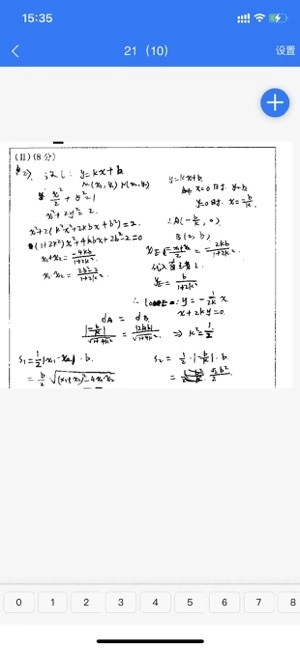 15:35
21 (10)
设置
(II) (8分)
(2) 设 l: y=kx+b
M(x₁,y₁) N(x₂,y₂)
x²/2 + y²=1
x²+2y²=2
x²+2(k²x²+2kbx+b²)=2
(1+2k²)x²+4kbx+2b²-2=0
x₁+x₂= -4kb/(1+2k²)
x₁x₂= (2b²-2)/(1+2k²)
y=kx+b
x=0 时 y=b
y=0 时 x=-b/k
∴A(-b/k, 0)
B(0, b)
x_E=(x₁+x₂)/2=-2kb/(1+2k²)
y_E= b/(1+2k²)
y=-1/(2k) x
x+2ky=0
d_A = d_B
|-b/k|/√(1+4k²) = |2kb|/√(1+4k²) ⇒ k²=1/2
S₁=1/2|x₁-x₂|·b
= b/2 √((x₁+x₂)²-4x₁x₂)
S₂= 1/2·|-b/k|·b
= √2b²/2
0 1 2 3 4 5 6 7 8